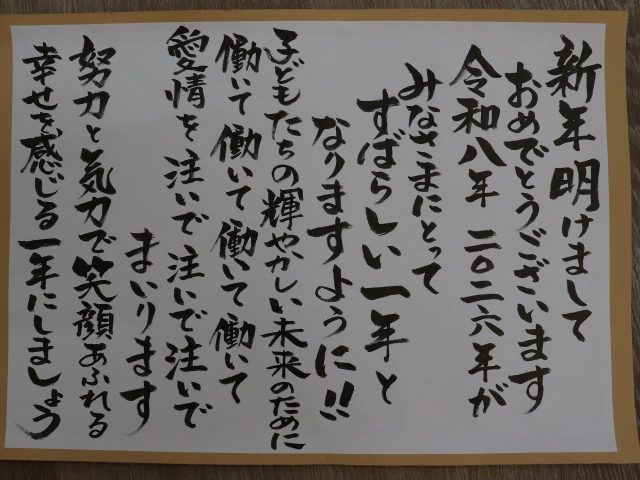 新年明けまして
おめでとうございます
令和八年 二〇二六年が
みなさまにとって
すばらしい一年と
なりますように!!
子どもたちの輝やかしい未来のために
働いて働いて働いて働いて
愛情を注いで注いで注いで
まいります
努力と気力で笑顔あふれる
幸せを感じる一年にしましょう